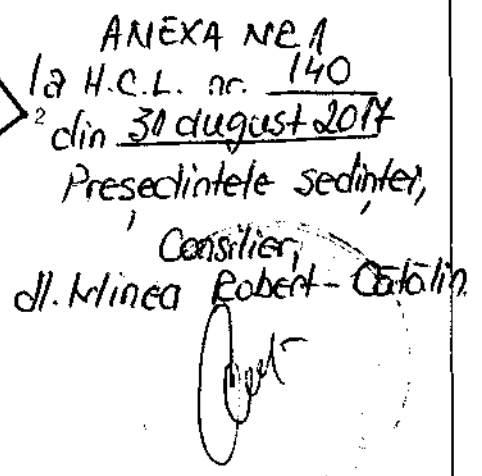 ANEXA NR 1
la H.C.L. nr. 140
2
din 31 august 2017
Președintele sedinței,
Consilier,
dl. Minea Robert-Cătălin